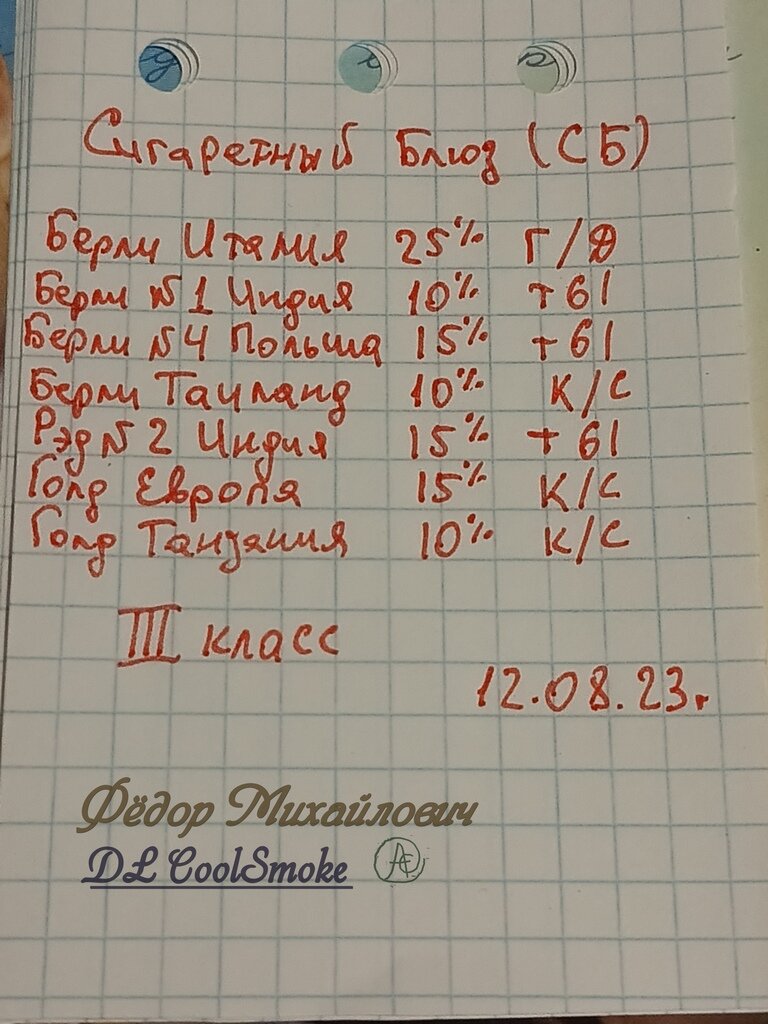 Сигаретный Блюд (СБ)
Берли Италия 25% Г/Д
Берли №1 Индия 10% +61
Берли №4 Польша 15% +61
Берли Таиланд 10% К/С
Рэд №2 Индия 15% +61
Голд Европя 15% К/С
Голд Танзания 10% К/С
III класс
12.08.23г
Фёдор Михайлович
DL CoolSmoke